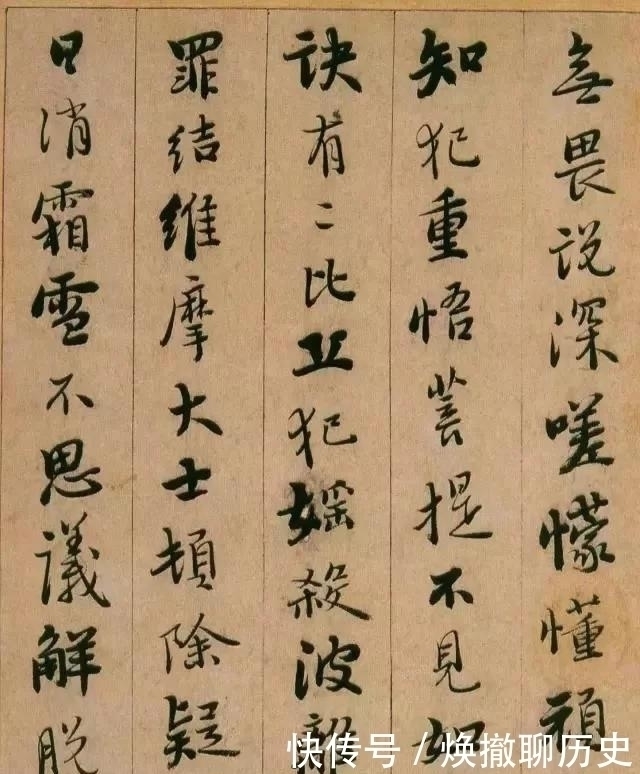 無畏說深嗟懵懂頑
知犯重悟菩提不見如
訣有二比丘犯婬殺波
罪結維摩大士頓除疑
日消霜雪不思議解脫
快传号 / 焕撤聊历史